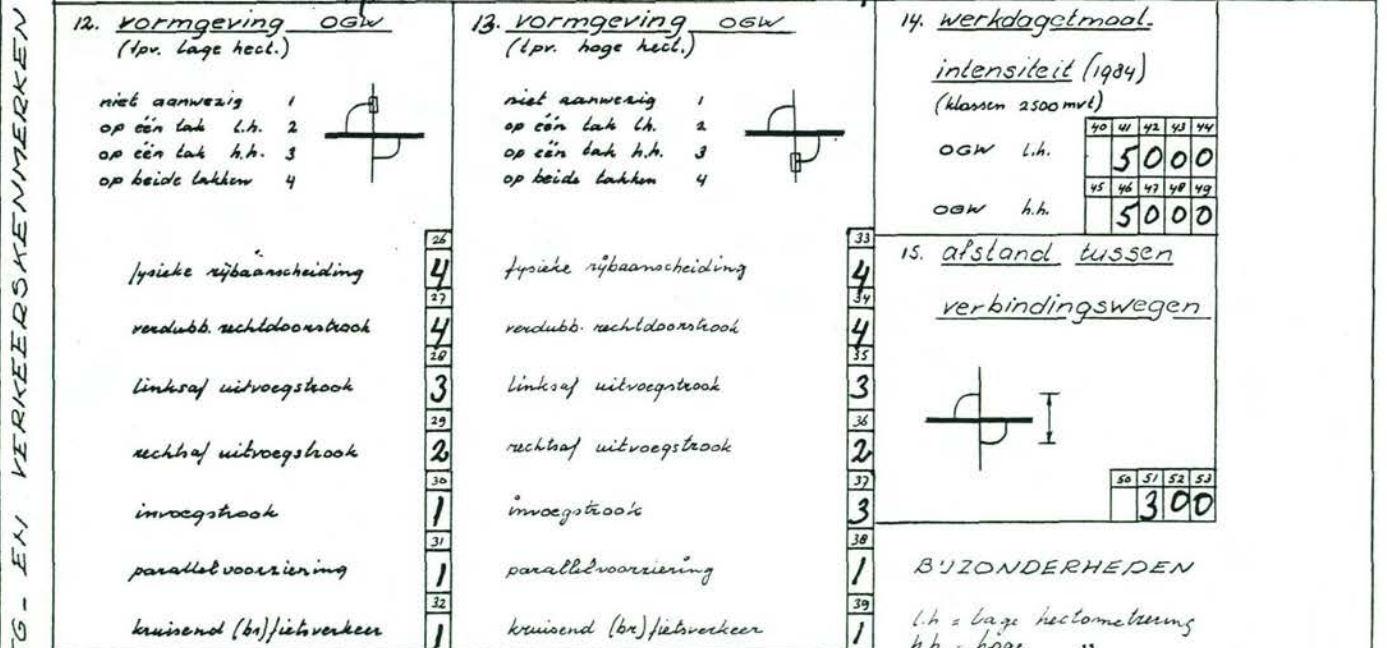 TG- EN VERKEERSKENMERKEN
12. vormgeving OGW
(tpv. lage hect.)
niet aanwezig 1
op één tak l.h. 2
op één tak h.h. 3
op beide takken 4
26
fysieke rijbaanscheiding 4
27
verdubb. rechtdoorstrook 4
28
linksaf uitvoegstrook 3
29
rechtsaf uitvoegstrook 2
30
invoegstrook 1
31
parallelvoorziening 1
32
kruisend (br) fietsverkeer 1
13. vormgeving OGW
(tpv. hoge hect.)
niet aanwezig 1
op één tak l.h. 2
op één tak h.h. 3
op beide takken 4
33
fysieke rijbaanscheiding 4
34
verdubb. rechtdoorstrook 4
35
linksaf uitvoegstrook 3
36
rechtsaf uitvoegstrook 2
37
invoegstrook 3
38
parallelvoorziening 1
39
kruisend (br) fietsverkeer 1
14. werkdagetmaal-
intensiteit (1984)
(klassen 2500 mvt)
40 41 42 43 44
OGW l.h. 5000
45 46 47 48 49
OGW h.h. 5000
15. afstand tussen
verbindingswegen
50 51 52 53
300
BIJZONDERHEDEN
l.h = lage hectometrering
h.h = hoge "